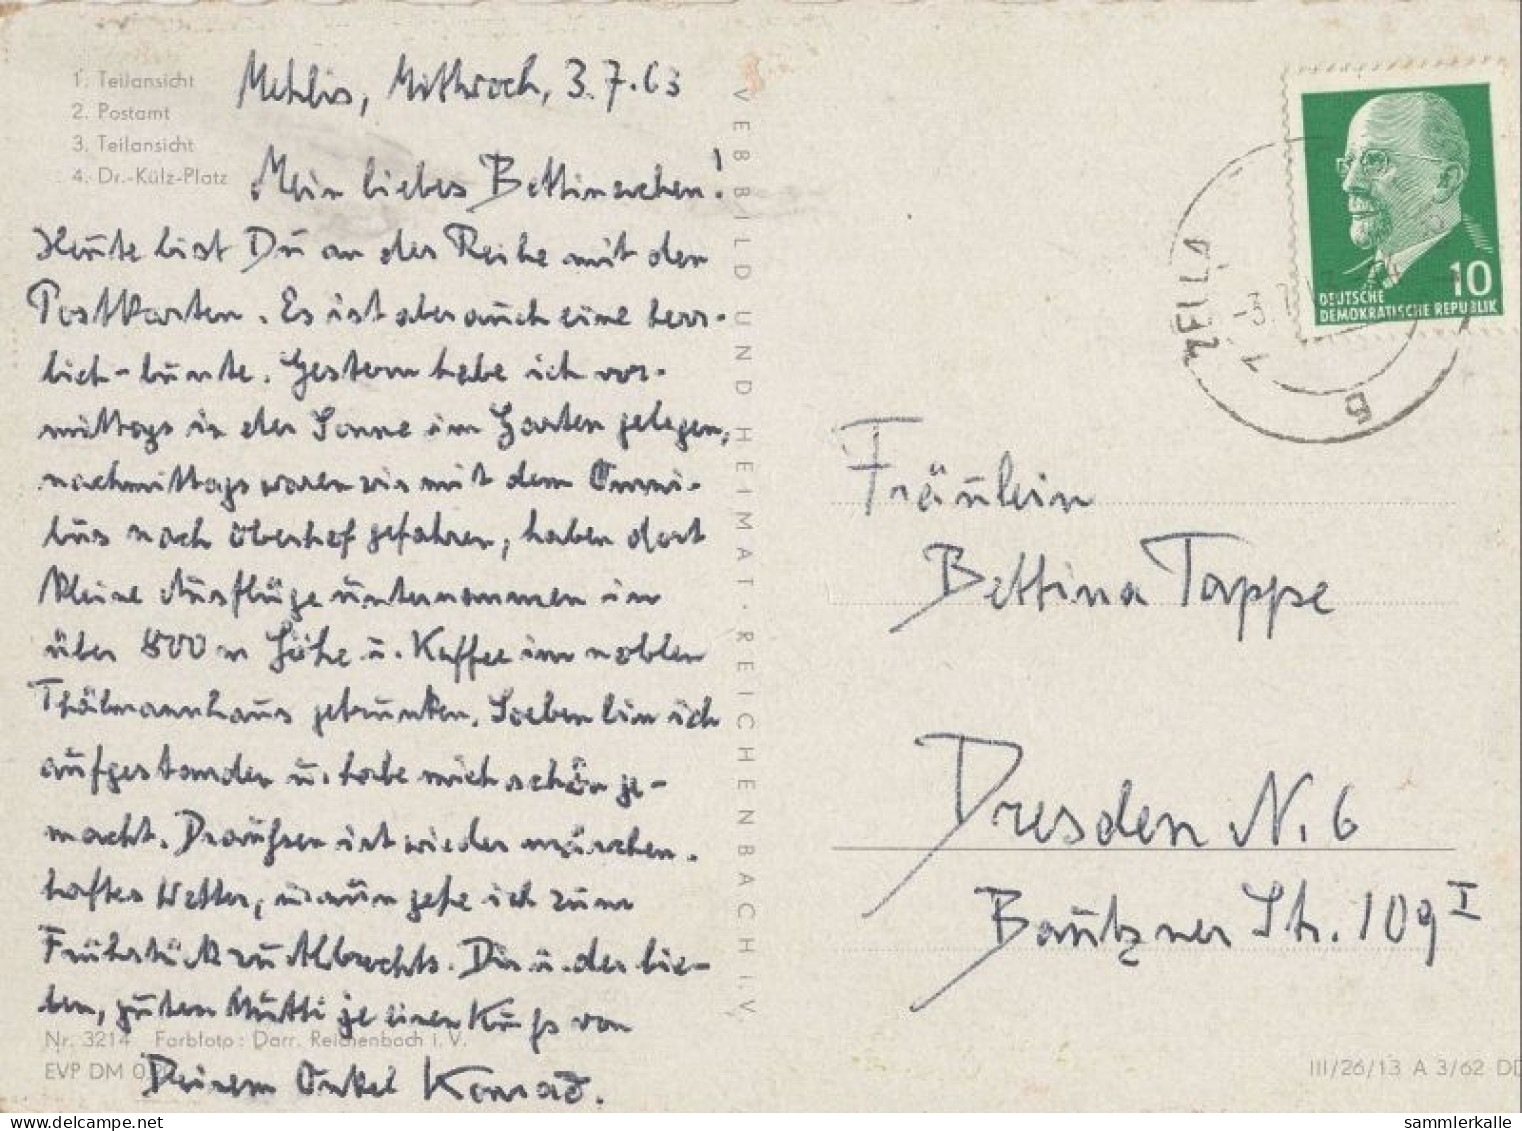 1. Teilansicht
2. Postamt
3. Teilansicht
4. Dr.-Külz-Platz
Mehlis, Mittwoch, 3.7.63
Mein liebes Bettinachen!
Heute bist Du an der Reihe mit den
Postkarten. Es ist aber auch eine herr-
lich-bunte. Gestern habe ich vor-
mittags in der Sonne im Garten gelegen,
nachmittags waren wir mit dem Omni-
bus nach Oberhof gefahren, haben dort
kleine Ausflüge unternommen in
über 800 m Höhe u. Kaffee im noblen
Thälmannhaus getrunken. Soeben bin ich
aufgestanden u. habe mich schön ge-
macht. Draußen ist wieder märchen-
haftes Wetter, nun gehe ich zum
Frühstück zu Albrechts. Dir u. der lie-
ben, guten Mutti je einen Kuß von
Deinem Onkel Konrad.
Nr. 3214 Farbfoto: Darr. Reichenbach i. V.
EVP DM 0
VEB BILD UND HEIMAT · REICHENBACH i. V.
10
DEUTSCHE
DEMOKRATISCHE REPUBLIK
-3. 7.
Fräulein
Bettina Tappe
Dresden N. 6
Bautzner Str. 109 I
III/26/13 A 3/62 DD
delcampe.net
sammlerkalle